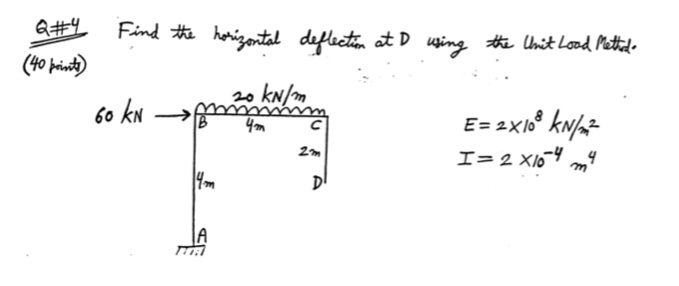 Q#4 Find the horizontal deflection at D using the Unit Load Method.
(40 points)
20 kN/m
60 kN
B 4m C
E = 2x10⁸ kN/m²
2m
I = 2 x10⁻⁴ m⁴
4m
D
A